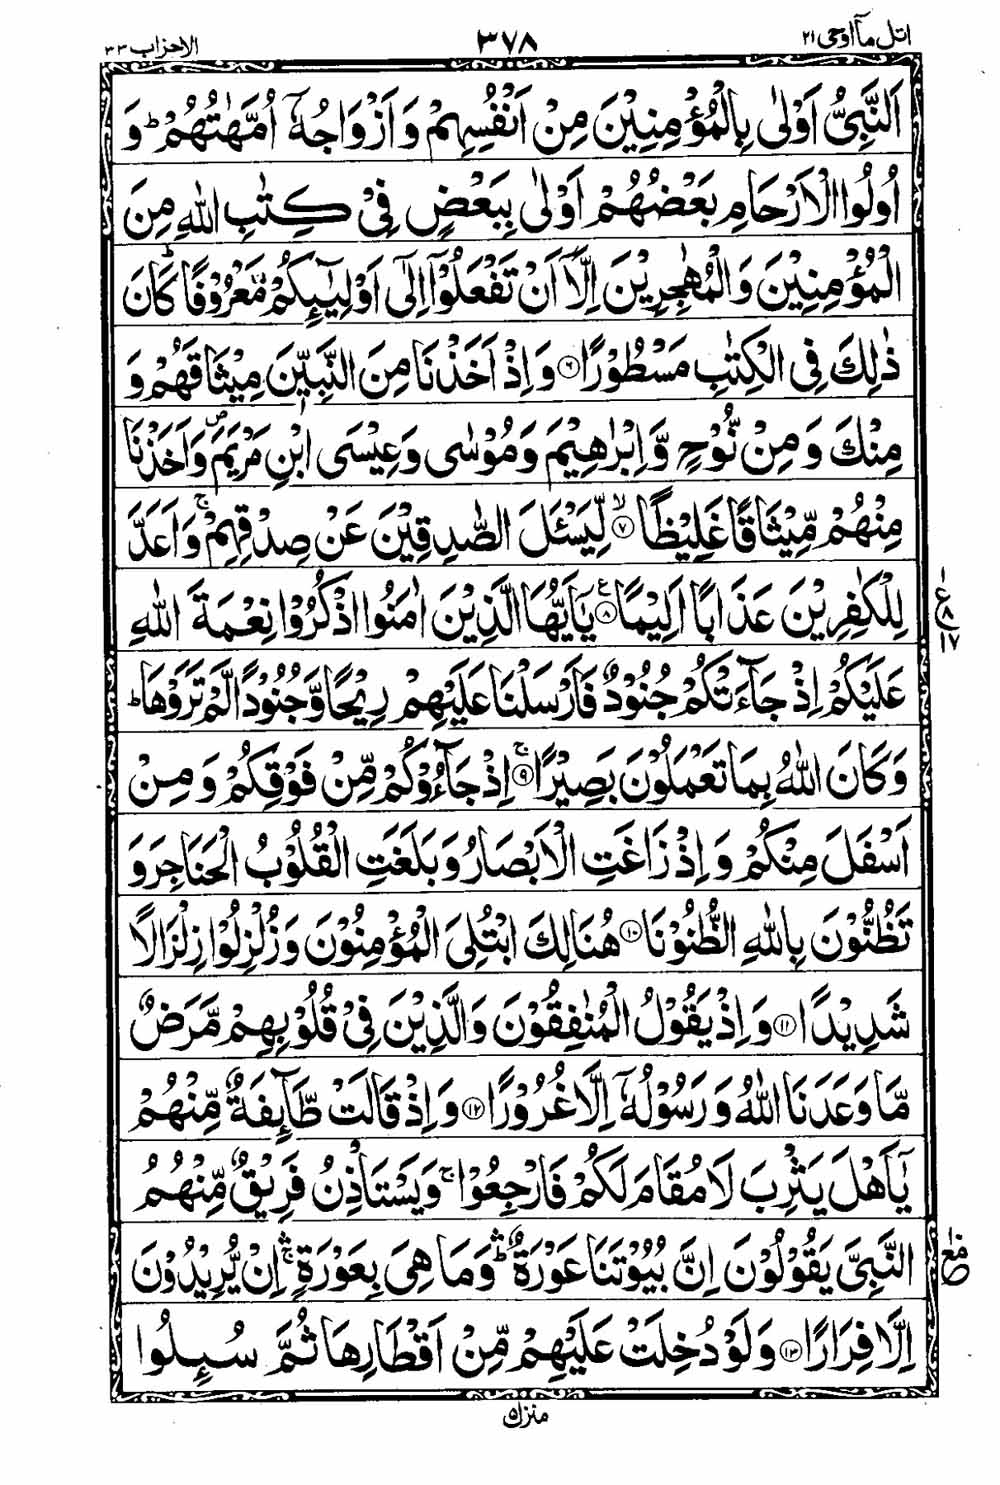 اتل مآ اوحی ٢١
٣٧٨
الاحزاب ٣٣
اَلنَّبِیُّ اَوْلٰی بِالْمُؤْمِنِیْنَ مِنْ اَنْفُسِهِمْ وَ اَزْوَاجُهٗۤ اُمَّهٰتُهُمْ ؕ وَ
اُولُوا الْاَرْحَامِ بَعْضُهُمْ اَوْلٰی بِبَعْضٍ فِیْ كِتٰبِ اللّٰهِ مِنَ
الْمُؤْمِنِیْنَ وَ الْمُهٰجِرِیْنَ اِلَّاۤ اَنْ تَفْعَلُوْۤا اِلٰۤی اَوْلِیٰٓىِٕكُمْ مَّعْرُوْفًا ؕ كَانَ
ذٰلِكَ فِی الْكِتٰبِ مَسْطُوْرًا ﴿۶﴾ وَ اِذْ اَخَذْنَا مِنَ النَّبِیّٖنَ مِیْثَاقَهُمْ وَ
مِنْكَ وَ مِنْ نُّوْحٍ وَّ اِبْرٰهِیْمَ وَ مُوْسٰی وَ عِیْسَی ابْنِ مَرْیَمَ ۪ وَ اَخَذْنَا
مِنْهُمْ مِّیْثَاقًا غَلِیْظًا ﴿۷﴾ۙ لِّیَسْـَٔلَ الصّٰدِقِیْنَ عَنْ صِدْقِهِمْ ۚ وَ اَعَدَّ
لِلْكٰفِرِیْنَ عَذَابًا اَلِیْمًا ﴿۸﴾ع یٰۤاَیُّهَا الَّذِیْنَ اٰمَنُوا اذْكُرُوْا نِعْمَةَ اللّٰهِ
عَلَیْكُمْ اِذْ جَآءَتْكُمْ جُنُوْدٌ فَاَرْسَلْنَا عَلَیْهِمْ رِیْحًا وَّ جُنُوْدًا لَّمْ تَرَوْهَا ؕ
وَ كَانَ اللّٰهُ بِمَا تَعْمَلُوْنَ بَصِیْرًا ﴿۹﴾ۚ اِذْ جَآءُوْكُمْ مِّنْ فَوْقِكُمْ وَ مِنْ
اَسْفَلَ مِنْكُمْ وَ اِذْ زَاغَتِ الْاَبْصَارُ وَ بَلَغَتِ الْقُلُوْبُ الْحَنَاجِرَ وَ
تَظُنُّوْنَ بِاللّٰهِ الظُّنُوْنَا ﴿۱۰﴾ هُنَالِكَ ابْتُلِیَ الْمُؤْمِنُوْنَ وَ زُلْزِلُوْا زِلْزَالًا
شَدِیْدًا ﴿۱۱﴾ وَ اِذْ یَقُوْلُ الْمُنٰفِقُوْنَ وَ الَّذِیْنَ فِیْ قُلُوْبِهِمْ مَّرَضٌ
مَّا وَعَدَنَا اللّٰهُ وَ رَسُوْلُهٗۤ اِلَّا غُرُوْرًا ﴿۱۲﴾ وَ اِذْ قَالَتْ طَّآىِٕفَةٌ مِّنْهُمْ
یٰۤاَهْلَ یَثْرِبَ لَا مُقَامَ لَكُمْ فَارْجِعُوْا ۚ وَ یَسْتَاْذِنُ فَرِیْقٌ مِّنْهُمُ
النَّبِیَّ یَقُوْلُوْنَ اِنَّ بُیُوْتَنَا عَوْرَةٌ ۛؕ وَ مَا هِیَ بِعَوْرَةٍ ۛۚ اِنْ یُّرِیْدُوْنَ
اِلَّا فِرَارًا ﴿۱۳﴾ وَ لَوْ دُخِلَتْ عَلَیْهِمْ مِّنْ اَقْطَارِهَا ثُمَّ سُىِٕلُوا
منزل ۵